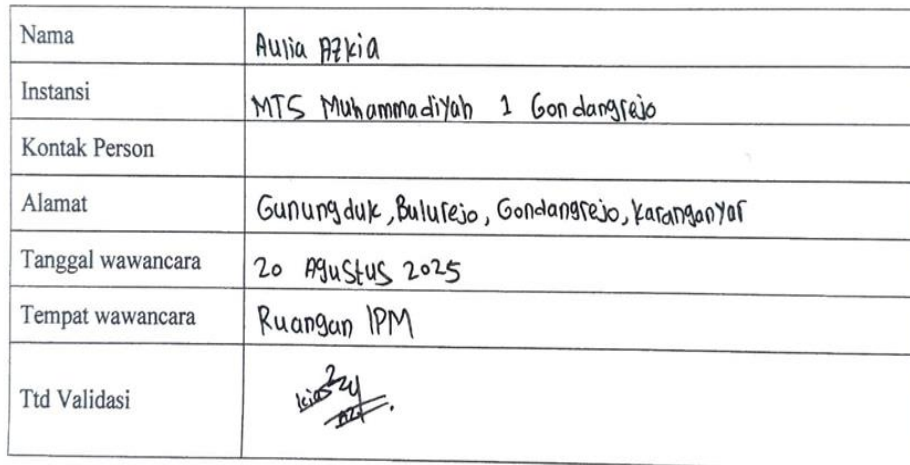 Nama Aulia Azkia
Instansi MTS Muhammadiyah 1 Gondangrejo
Kontak Person
Alamat Gunungduk, Bulurejo, Gondangrejo, Karanganyar
Tanggal wawancara 20 Agustus 2025
Tempat wawancara Ruangan IPM
Ttd Validasi